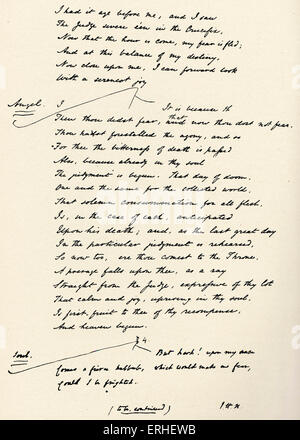 I had it aye before me, and I saw
The Judge severe e'en in the Crucifix.
Now that the hour is come, my fear is fled;
And at this balance of my destiny,
Now close upon me, I can forward look
With a serenest joy
Angel. It is because
Then thou didst fear, that now thou dost not fear.
Thou hast forestalled the agony, and so
For thee the bitterness of death is passed
Also, because already in thy soul
The judgment is begun. That day of doom,
One and the same for the collected world,
That solemn consummation for all flesh,
Is, in the case of each, anticipated
Upon his death; and, as the last great day
In the particular judgment is rehearsed,
So now too, ere thou comest to the Throne,
A presage falls upon thee, as a ray
Straight from the Judge, expressive of thy lot
That calm and joy, uprising in thy soul,
Is first fruit to thee of thy recompense,
And heaven begun.
Soul. 34 But hark! upon my sense
Comes a fierce hubbub, which would make me fear,
Could I be frighted.
(to be continued) J H N
ERHEWB